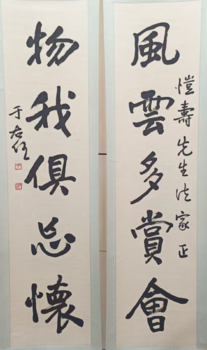 風雲多賞會
愷壽先生法家正
物我俱忘懷
于右任